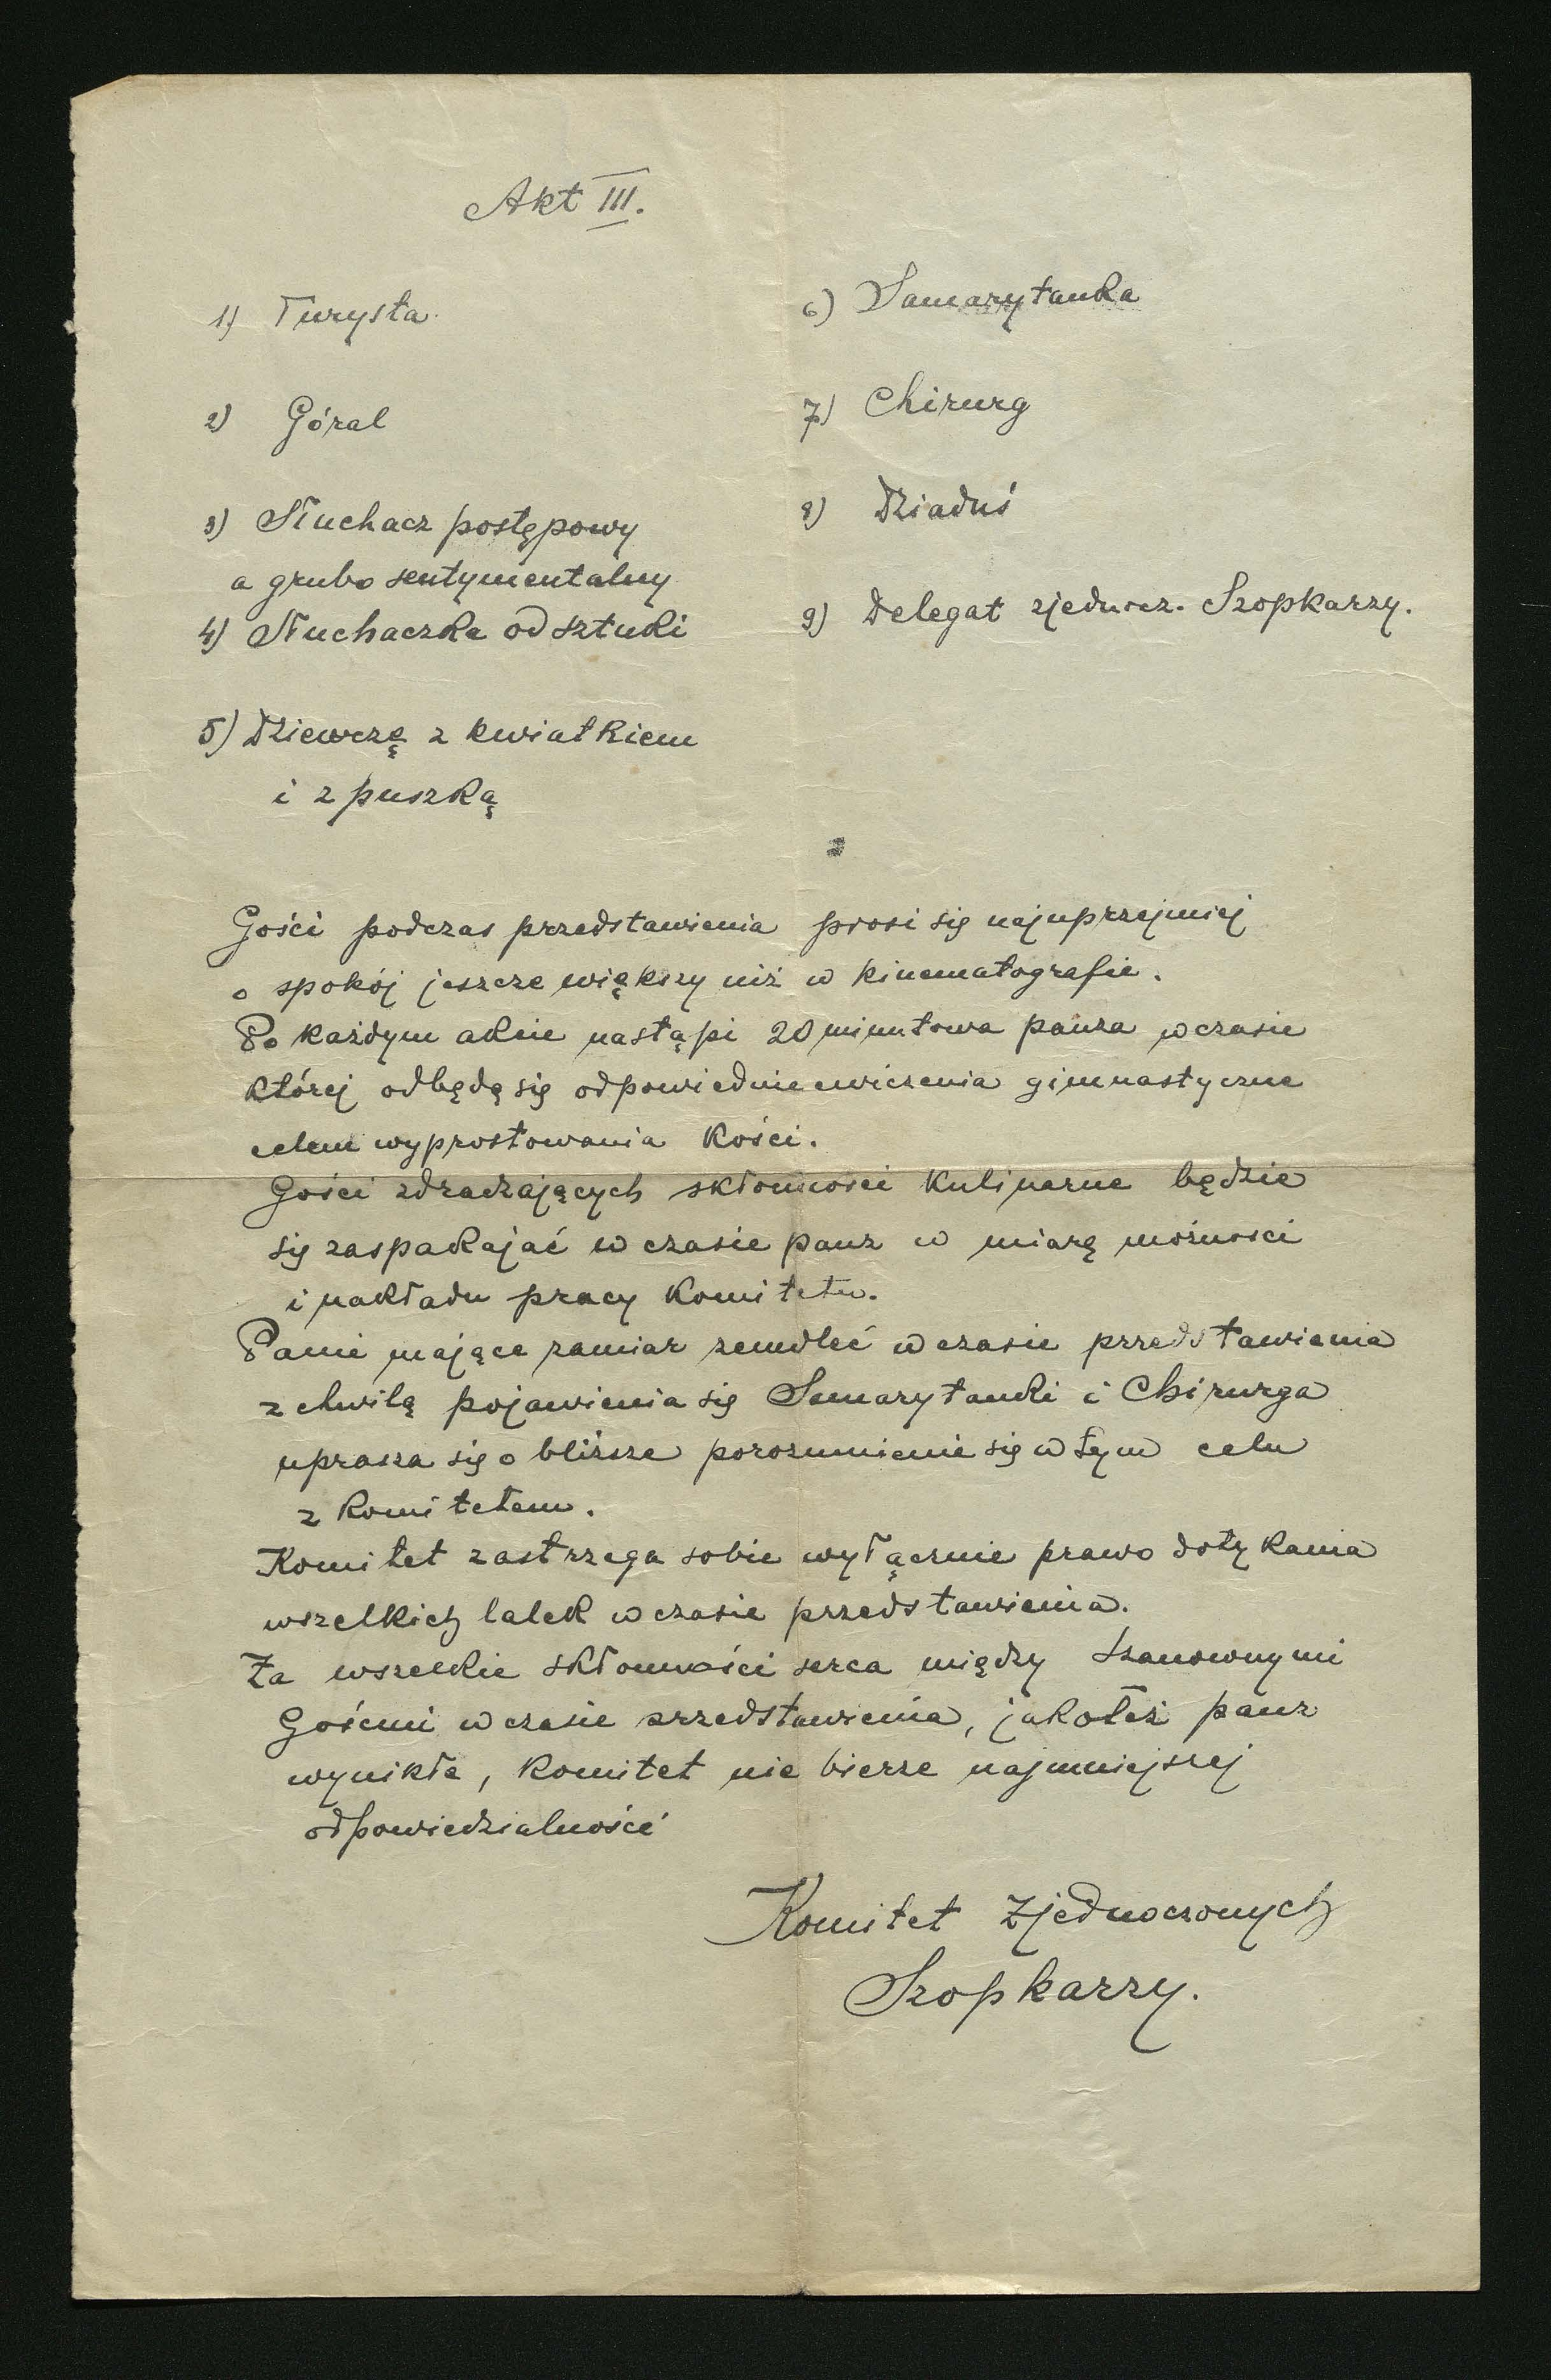 Akt III.
1) Turysta
2) Góral
3) Słuchacz postępowy
a grubo sentymentalny
4) Słuchaczka od sztuki
5) Dziewczę z kwiatkiem
i z puszką
6) Samarytanka
7) Chirurg
8) Dziaduś
9) Delegat zjednocz. Szopkarzy.
Gości podczas przedstawienia prosi się najuprzejmiej
o spokój jeszcze większy niż w kinematografie.
Po każdym akcie nastąpi 20 minutowa pauza w czasie
której odbędą się odpowiednie ćwiczenia gimnastyczne
celem wyprostowania kości.
Gości zdradzających skłonności kulinarne będzie
się zaspakajać w czasie pauz w miarę możności
i nakładu pracy Komitetu.
Panie mające zamiar zemdleć w czasie przedstawienia
z chwilą pojawienia się Samarytanki i Chirurga
uprasza się o bliższe porozumienie się w tym celu
z Komitetem.
Komitet zastrzega sobie wyłącznie prawo dotykania
wszelkich lalek w czasie przedstawienia.
Za wszelkie skłonności serca między Szanownymi
Gośćmi w czasie przedstawienia, jakoteż pauz
wynikłe, Komitet nie bierze najmniejszej
odpowiedzialności
Komitet Zjednoczonych
Szopkarzy.